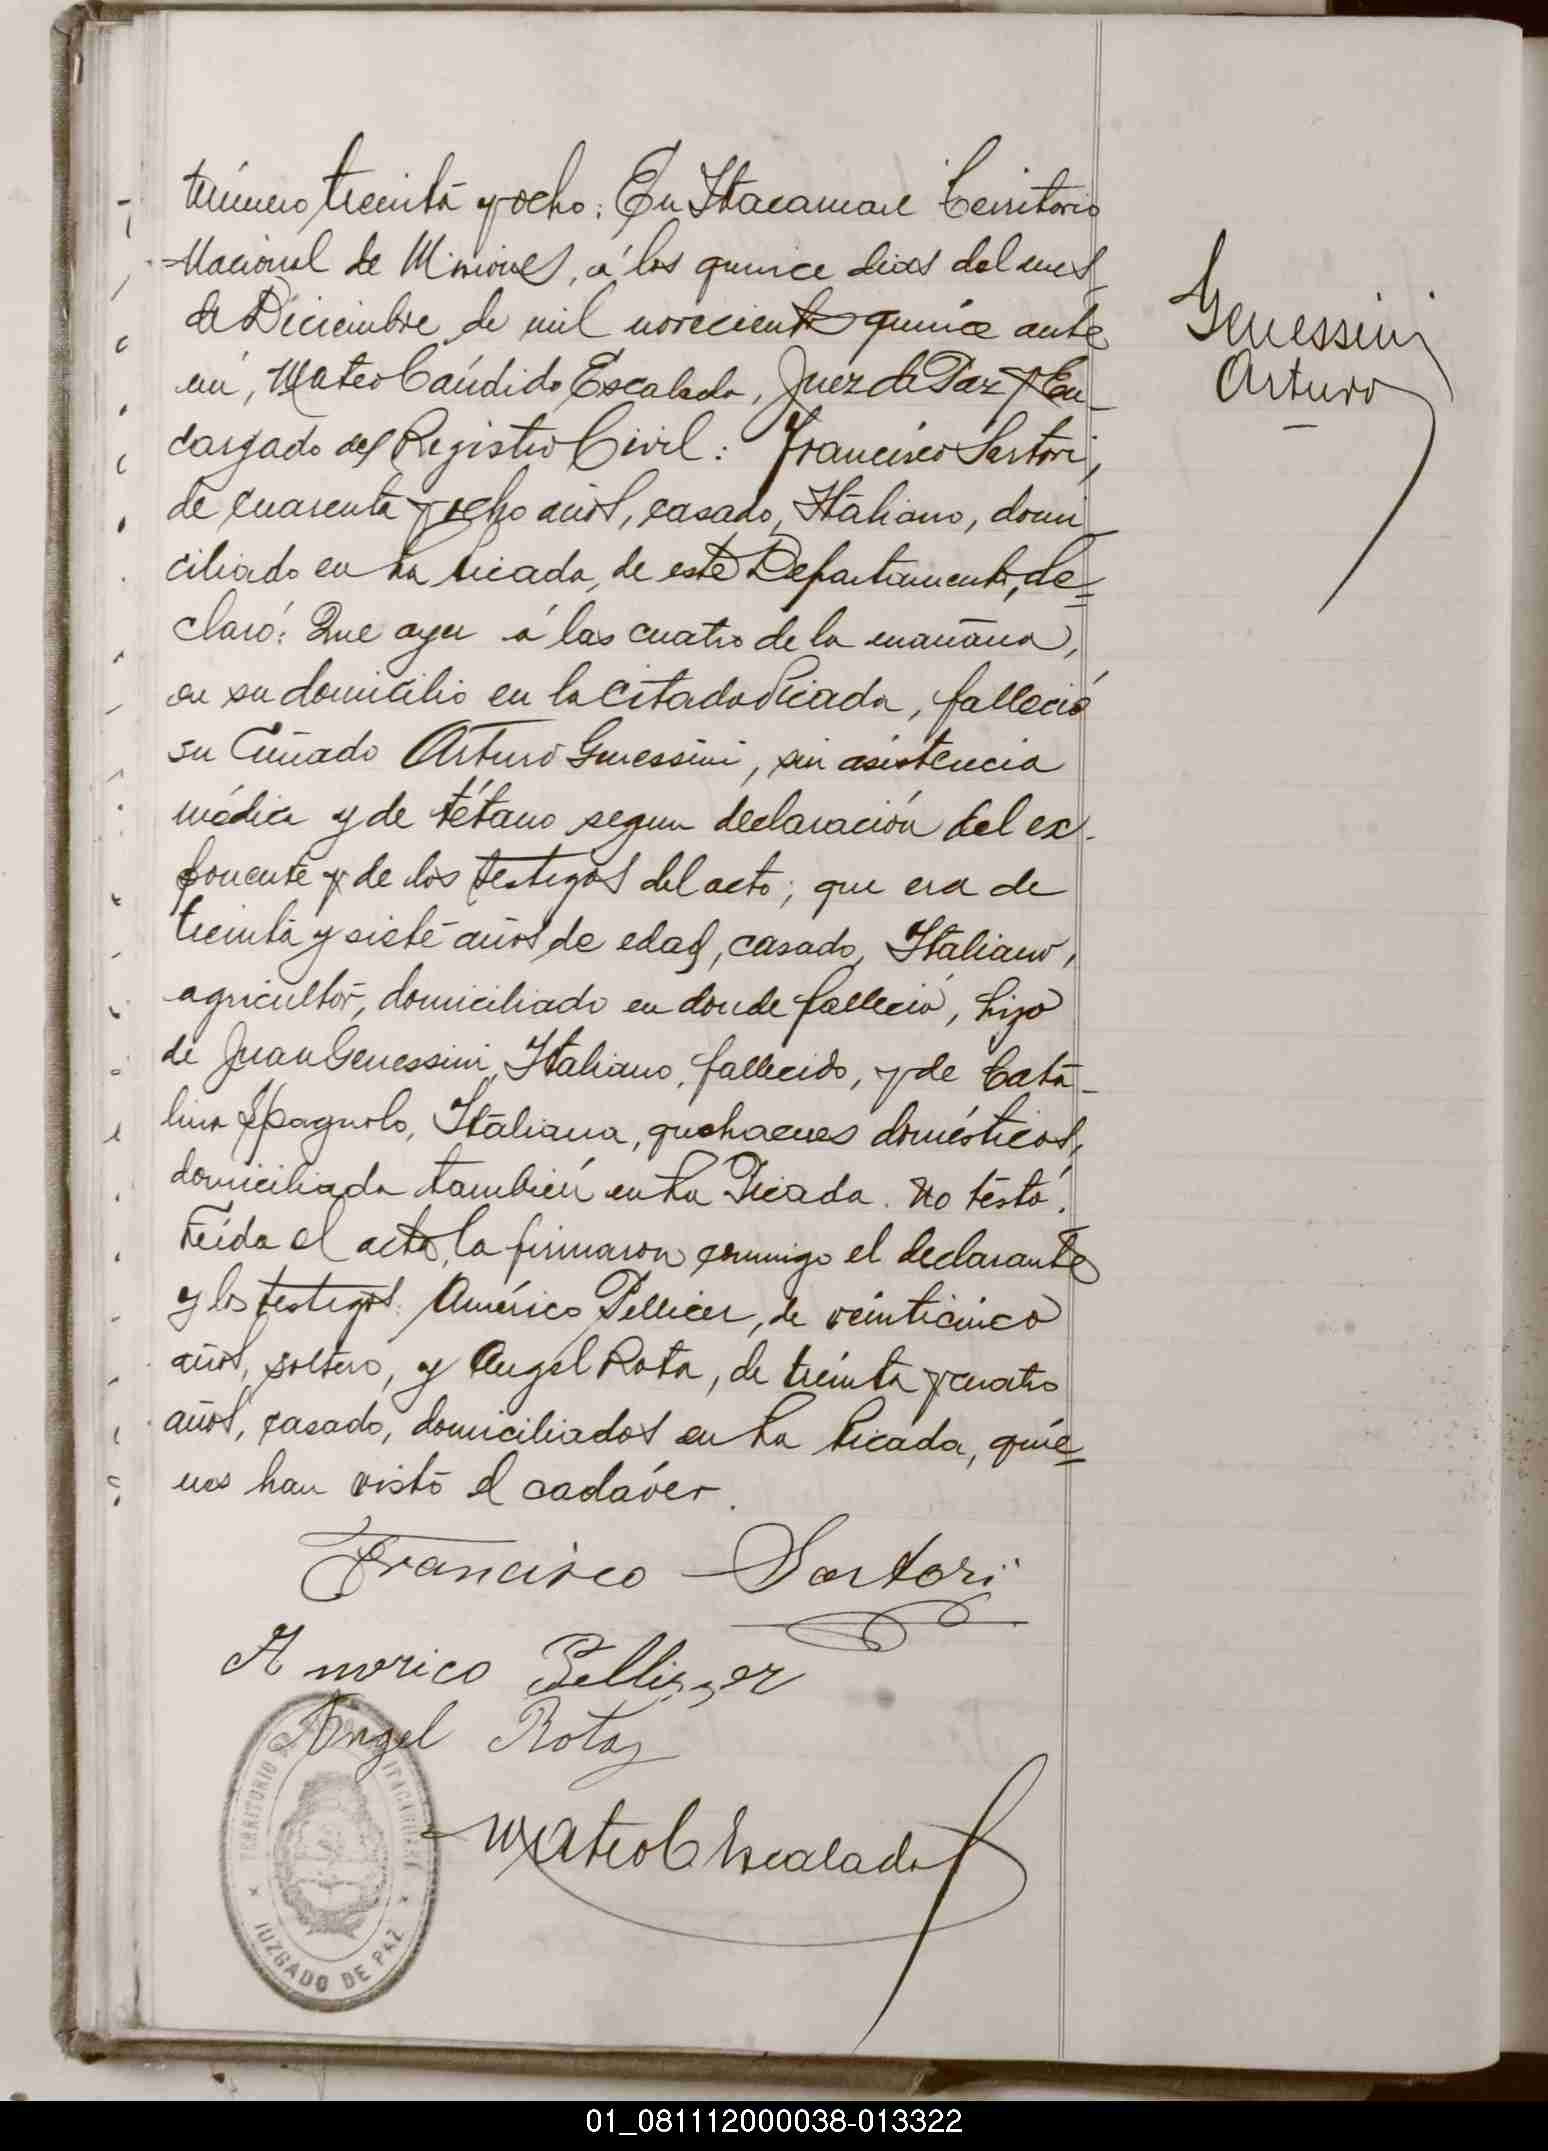 Número treinta y ocho: En Itacaruaré Territorio
Nacional de Misiones, á los quince dias del mes
de Diciembre de mil novecientos quince ante
mi, Mateo Cándido Escalada, Juez de Paz y En-
cargado del Registro Civil: Francisco Sartori,
de cuarenta y ocho años, casado, Italiano, domi-
ciliado en La Picada, de este Departamento, de=
claró: Que ayer á las cuatro de la mañana,
en su domicilio en la citada Picada, falleció
su Cuñado Arturo Genessini, sin asistencia
médica y de tétano segun declaración del ex-
ponente y de los testigos del acto; que era de
treinta y siete años de edad, casado, Italiano,
agricultor, domiciliado en donde falleció, hijo
de Juan Genessini, Italiano, fallecido, y de Cata-
lina Spagnolo, Italiana, quehaceres domésticos,
domiciliada también en La Picada. No testó.
Leida el acta, la firmaron conmigo el declarante
y los testigos: Américo Pellicer, de veinticinco
años, soltero, y Angel Rota, de treinta y cuatro
años, casado, domiciliados en La Picada, quie=
nes han visto el cadáver.
Genessini
Arturo
Francisco Sartori
Americo Pellizzer
Angel Rota
Mateo C Escalada
TERRITORIO ITACARUARÉ
JUZGADO DE PAZ
01_081112000038-013322